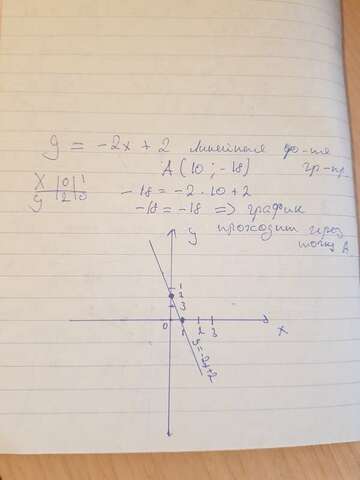 y = -2x + 2 линейная ф-ция
A (10 ; -18) гр-пр.
x | 0 | 1
y | 2 | 0
-18 = -2 · 10 + 2
-18 = -18 => график
проходит через
точку A
y
1
2
3
0 1 2 3
x
y=-2x+2